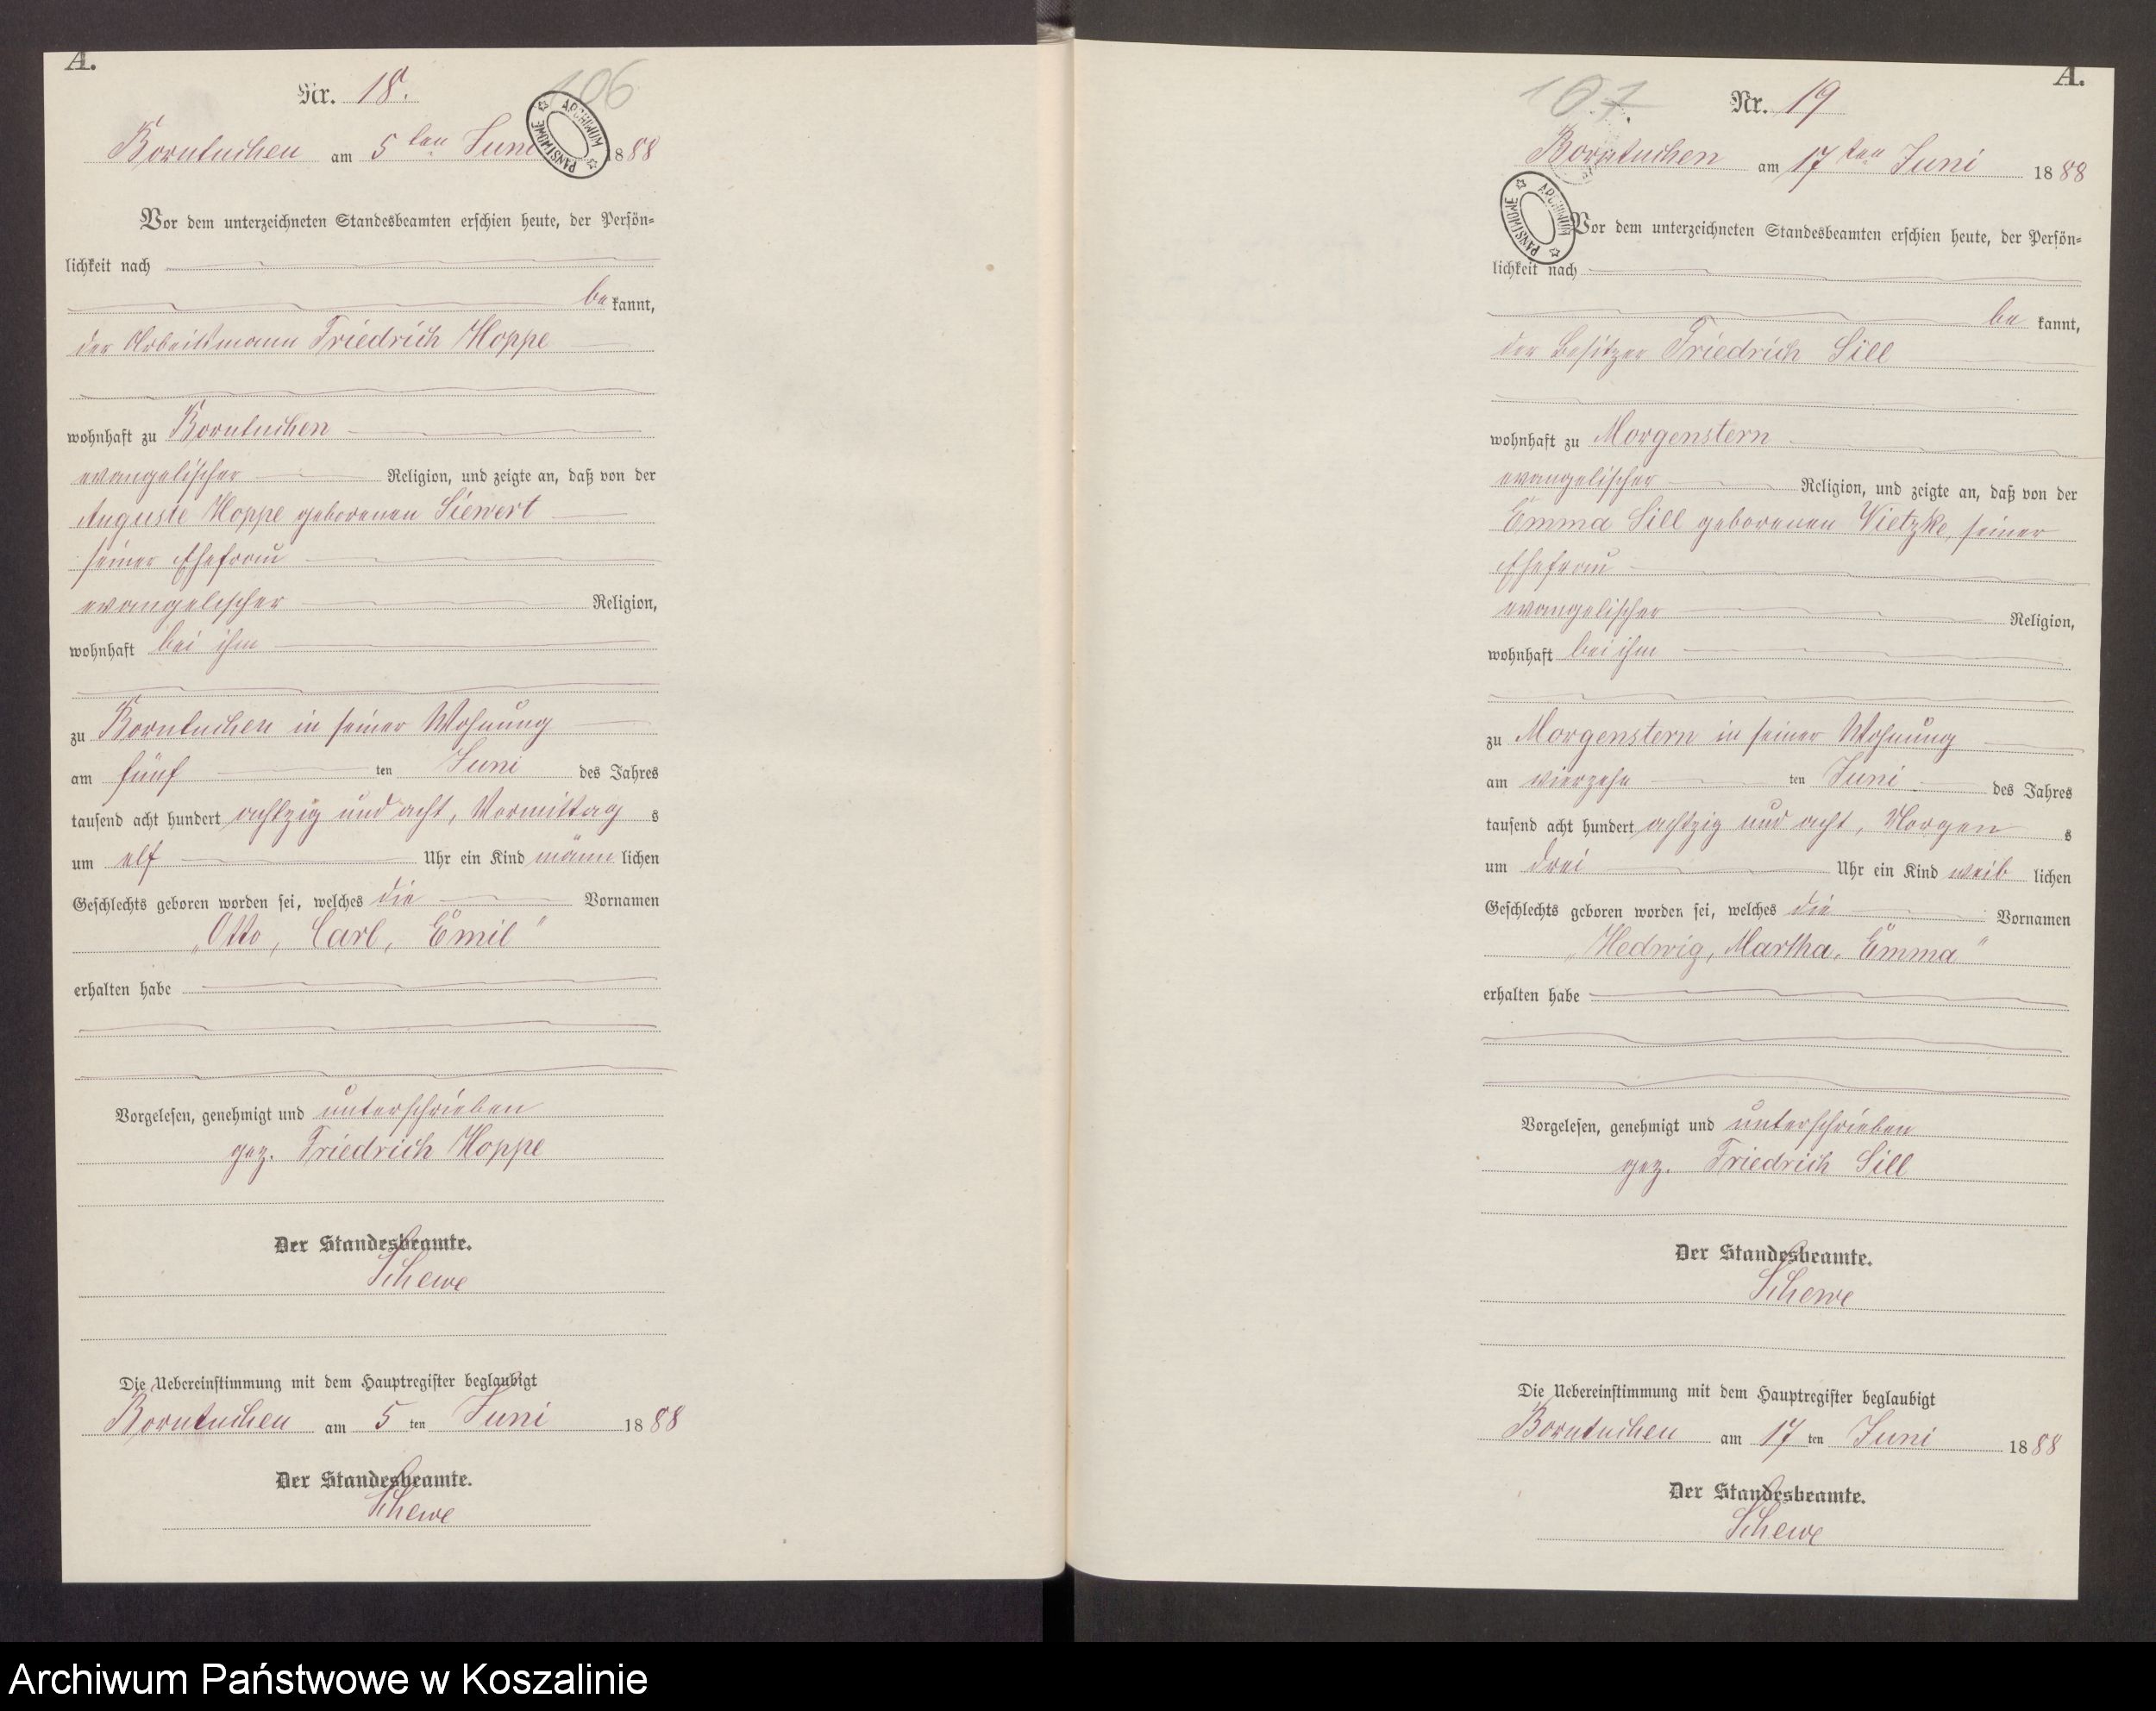 A.
Nr. 18.
106
ARCHIWUM PAŃSTWOWE
Borntuchen am 5 ten Juni 1888
Vor dem unterzeichneten Standesbeamten erschien heute, der Persön=
lichkeit nach
be kannt,
der Arbeitsmann Friedrich Hoppe
wohnhaft zu Borntuchen
evangelischer Religion, und zeigte an, daß von der
Auguste Hoppe geborenen Siewert
seiner Ehefrau
evangelischer Religion,
wohnhaft bei ihm
zu Borntuchen in seiner Wohnung
am fünf ten Juni des Jahres
tausend acht hundert achtzig und acht, Vormittag s
um elf Uhr ein Kind männ lichen
Geschlechts geboren worden sei, welches die Vornamen
„Otto, Carl, Emil"
erhalten habe
Vorgelesen, genehmigt und unterschrieben
gez. Friedrich Hoppe
Der Standesbeamte.
Schewe
Die Uebereinstimmung mit dem Hauptregister beglaubigt
Borntuchen am 5 ten Juni 1888
Der Standesbeamte.
Schewe
A.
107.
Nr. 19
Borntuchen am 17 ten Juni 1888
ARCHIWUM PAŃSTWOWE
Vor dem unterzeichneten Standesbeamten erschien heute, der Persön=
lichkeit nach
be kannt,
der Besitzer Friedrich Sill
wohnhaft zu Morgenstern
evangelischer Religion, und zeigte an, daß von der
Emma Sill geborenen Vietzke, seiner
Ehefrau
evangelischer Religion,
wohnhaft bei ihm
zu Morgenstern in seiner Wohnung
am vierzehn ten Juni des Jahres
tausend acht hundert achtzig und acht, Morgen s
um drei Uhr ein Kind weib lichen
Geschlechts geboren worden sei, welches die Vornamen
„Hedwig, Martha, Emma"
erhalten habe
Vorgelesen, genehmigt und unterschrieben
gez. Friedrich Sill
Der Standesbeamte.
Schewe
Die Uebereinstimmung mit dem Hauptregister beglaubigt
Borntuchen am 17 ten Juni 1888
Der Standesbeamte.
Schewe
Archiwum Państwowe w Koszalinie